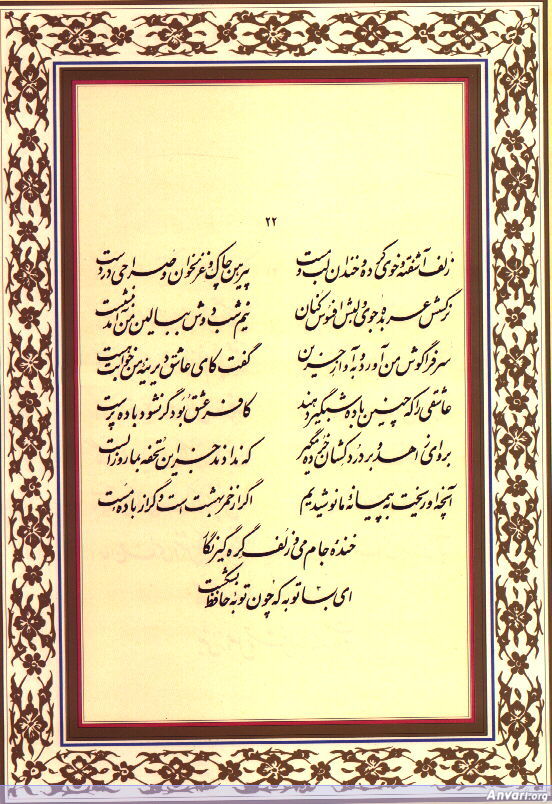 ۲۲
زلف آشفته و خوی کرده و خندان لب و مست پیرهن چاک و غزلخوان و صراحی در دست
نرگسش عربده جوی و لبش افسوس کنان نیم شب دوش ببالین من آمد بنشست
سر فرا گوش من آورد و به آواز حزین گفت کای عاشق دیرینهٔ من خوابت هست
عاشقی را که چنین بادهٔ شبگیر دهند کافر عشق بود گر نشود باده پرست
برو ای زاهد و بر دردکشان خرده مگیر که ندادند جز این تحفه بما روز الست
آنچه او ریخت به پیمانه ما نوشیدیم اگر از خمر بهشت است و گر از باده مست
خندهٔ جام می و زلف گره گیر نگار
ای بسا توبه که چون توبهٔ حافظ بشکست
Anvari.org